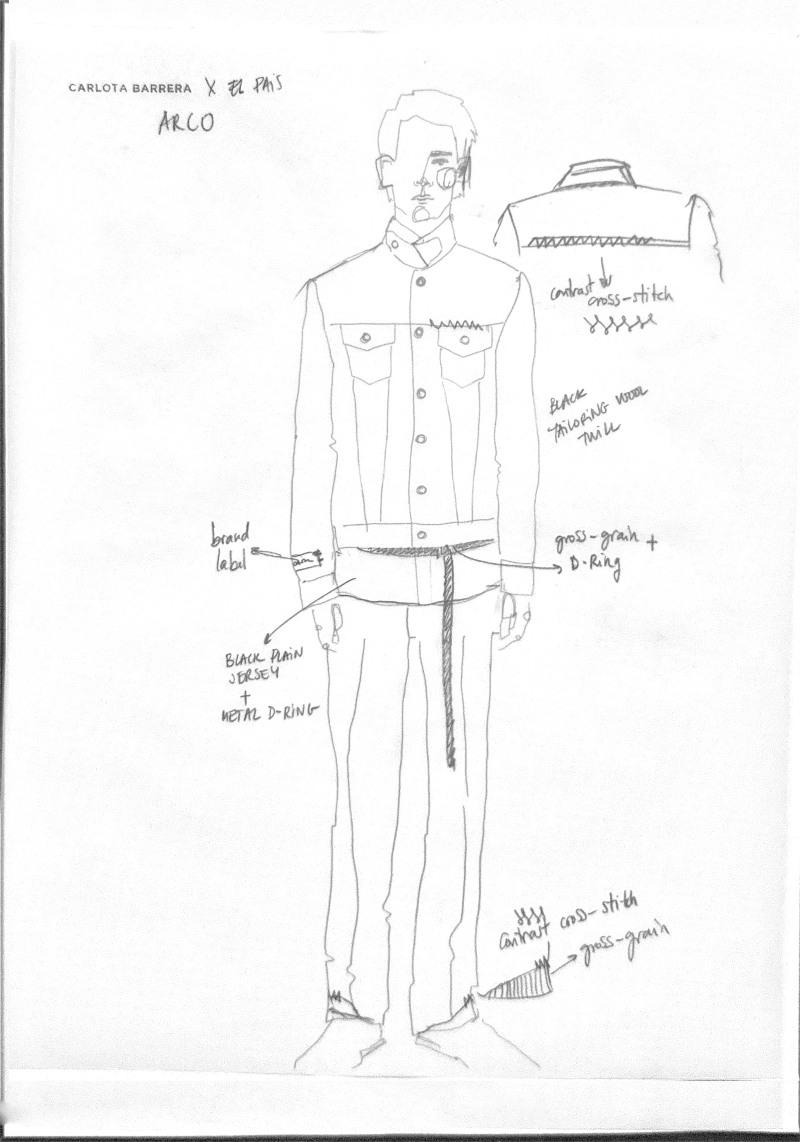 CARLOTA BARRERA X EL PAIS
ARCO
contrast
cross-stitch
BLACK
TAILORING WOOL
TWILL
brand
label
gross-grain +
D-Ring
BLACK PLAIN
JERSEY
+
METAL D-RING
contrast cross-stitch
gross-grain